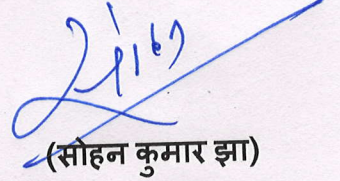 (सोहन कुमार झा)